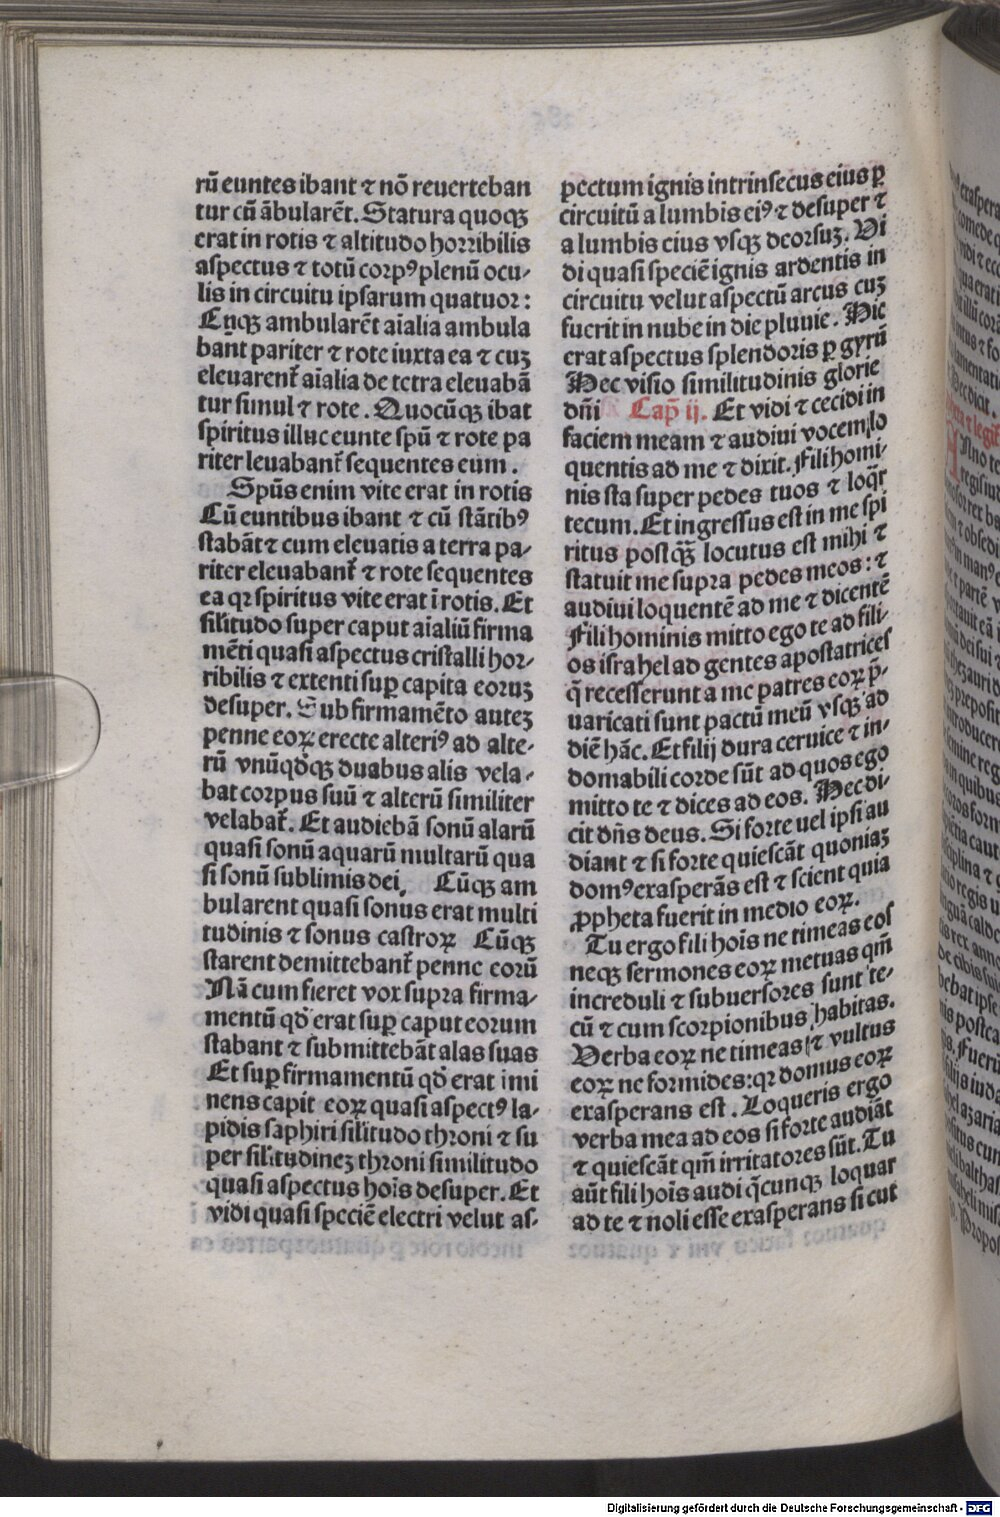 rū euntes ibant ⁊ nō reuerteban
tur cū ābularēt. Statura quoqꝫ
erat in rotis ⁊ altitudo horribilis
aspectus ⁊ totū corpꝰ plenū ocu-
lis in circuitu ipsarum quatuor:
Cūqꝫ ambularēt aīalia ambula
bant pariter ⁊ rote iuxta ea ⁊ cuꝫ
eleuarent᷑ aīalia de terra eleuabā
tur simul ⁊ rote. Quocūqꝫ ibat
spiritus illuc eunte spū ⁊ rote pa
riter leuabant᷑ sequentes eum.
Spūs enim vite erat in rotis
Cū euntibus ibant ⁊ cū stātibꝰ
stabāt ⁊ cum eleuatis a terra pa-
riter eleuabant᷑ ⁊ rote sequentes
ea qꝛ spiritus vite erat ī rotis. Et
silitudo super caput aīaliū firma
mēti quasi aspectus cristalli hor-
ribilis ⁊ extenti suꝑ capita eoruꝫ
desuper. Sub firmamēto auteꝫ
penne eoꝝ erecte alteriꝰ ad alte-
rū vnūqdqꝫ duabus alis vela-
bat corpus suū ⁊ alterū similiter
velabat᷑. Et audiebā sonū alarū
quasi sonū aquarū multarū qua
si sonū sublimis dei, Cūqꝫ am
bularent quasi sonus erat multi
tudinis ⁊ sonus castroꝝ Cūqꝫ
starent demittebant᷑ penne eorū
Nā cum fieret vox supra firma-
mentū qd̄ erat suꝑ caput eorum
stabant ⁊ submittebāt alas suas
Et suꝑ firmamentū qd̄ erat imi
nens capit eoꝝ quasi aspectꝰ la-
pidis saphiri silitudo throni ⁊ su
per silitudineꝫ throni similitudo
quasi aspectus hoīs desuper. Et
vidi quasi speciē electri velut as-
pectum ignis intrinsecus eius ꝑ
circuitū a lumbis eiꝰ ⁊ desuper ⁊
a lumbis eius vsqꝫ deorsuꝫ. Vi
di quasi speciē ignis ardentis in
circuitu velut aspectū arcus cuꝫ
fuerit in nube in die pluuie. Hic
erat aspectus splendoris ꝑ gyrū
Hec visio similitudinis glorie
dn̄i Cap̄ ij. Et vidi ⁊ cecidi in
faciem meam ⁊ audiui vocem lo
quentis ad me ⁊ dixit. Fili homi-
nis sta super pedes tuos ⁊ loq̄r
tecum. Et ingressus est in me spi
ritus postqꝫ̄ locutus est mihi ⁊
statuit me supra pedes meos: ⁊
audiui loquentē ad me ⁊ dicentē
Fili hominis mitto ego te ad fili-
os israhel ad gentes apostatrices
q̄ recesserunt a me patres eoꝝ p̄-
uaricati sunt pactū meū vsqꝫ ad
diē hāc. Et filij dura ceruice ⁊ in-
domabili corde sūt ad quos ego
mitto te ⁊ dices ad eos. Hec di-
cit dn̄s deus. Si forte uel ipsi au
diant ⁊ si forte quiescāt quoniaꝫ
domꝰ exasperās est ⁊ scient quia
ꝓpheta fuerit in medio eoꝝ.
Tu ergo fili hoīs ne timeas eos
neqꝫ sermones eoꝝ metuas qm̄
increduli ⁊ subuersores sunt te-
cū ⁊ cum scorpionibus habitas.
Verba eoꝝ ne timeas ⁊ vultus
eoꝝ ne formides: qꝛ domus eoꝝ
exasperans est. Loqueris ergo
verba mea ad eos si forte audiāt
⁊ quiescāt qm̄ irritatores sūt. Tu
aūt fili hoīs audi q̄cunqꝫ loquar
ad te ⁊ noli esse exasperans si cut
Digitalisierung gefördert durch die Deutsche Forschungsgemeinschaft - DFG